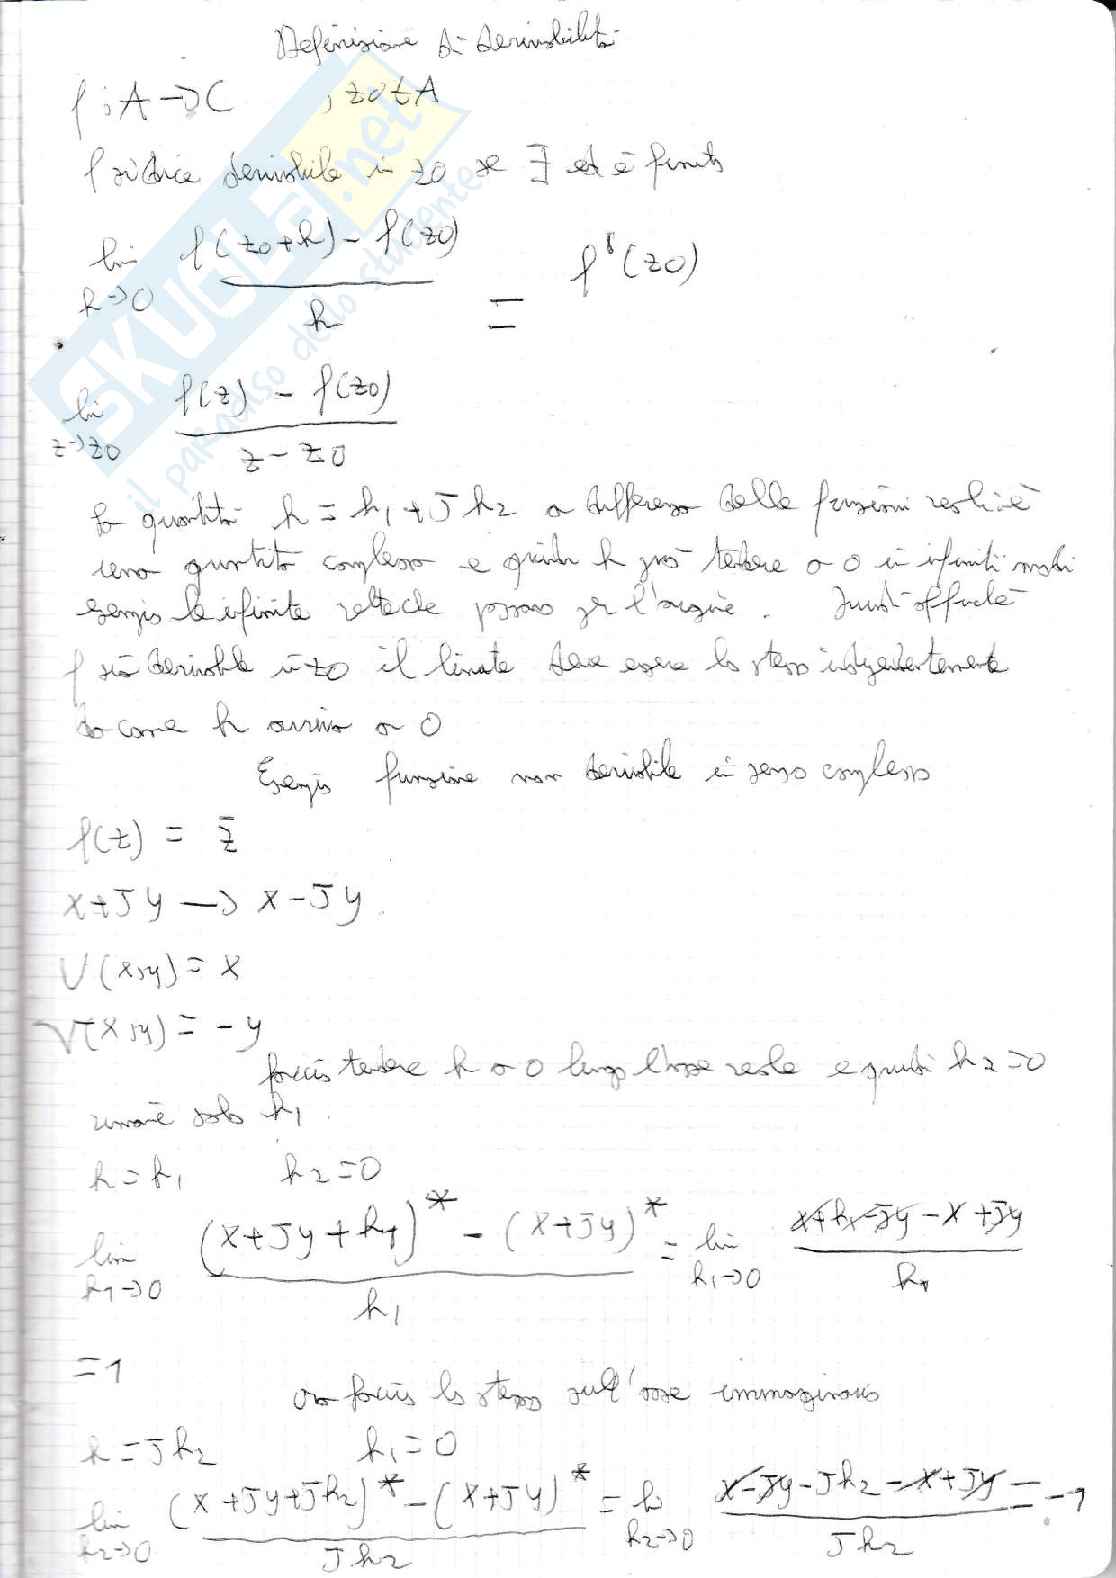 Definizione di derivabilità
f : A → C , z0 ∈ A
f si dice derivabile in z0 se ∃ ed è finito
lim h→0 f(z0+h) - f(z0) / h = f'(z0)
lim z→z0 f(z) - f(z0) / z - z0
la quantità h = h1 + J h2 a differenza delle funzioni reali è
una quantità complessa e quindi h può tendere a 0 in infiniti modi
esempio le infinite rette che passano per l'origine.
f sia derivabile in z0 il limite deve essere lo stesso indipendentemente
da come h arriva a 0
Esempio funzione non derivabile in senso complesso
f(z) = z̄
x+Jy → x-Jy
U(x,y) = x
V(x,y) = -y
faccio tendere h a 0 lungo l'asse reale e quindi h2=0
rimane solo h1
h = h1 h2 = 0
lim h1→0 (x+Jy+h1)* - (x+Jy)* / h1 = lim h1→0 x+h1-Jy-x+Jy / h1
= 1
ora faccio lo stesso sull'asse immaginario
h = Jh2 h1 = 0
lim h2→0 (x+Jy+Jh2)* - (x+Jy)* / Jh2 = lim h2→0 x-Jy-Jh2-x+Jy / Jh2 = -1
SKUOLA.net
il paradiso dello studente